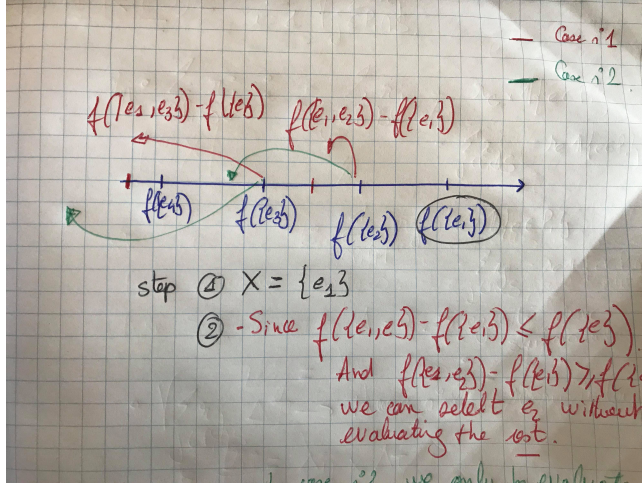 Case n°1
Case n°2
f({e1,e3}) - f({e})
f({e1,e2}) - f({e1})
f({e4}) f({e3}) f({e2}) f({e1})
step ① X = {e1}
② - Since f({e1,e}) - f({e1}) ≤ f({e})
And f({e1,e2}) - f({e1}) ≥ f({
we can select e2 without
evaluating the rest.
we only